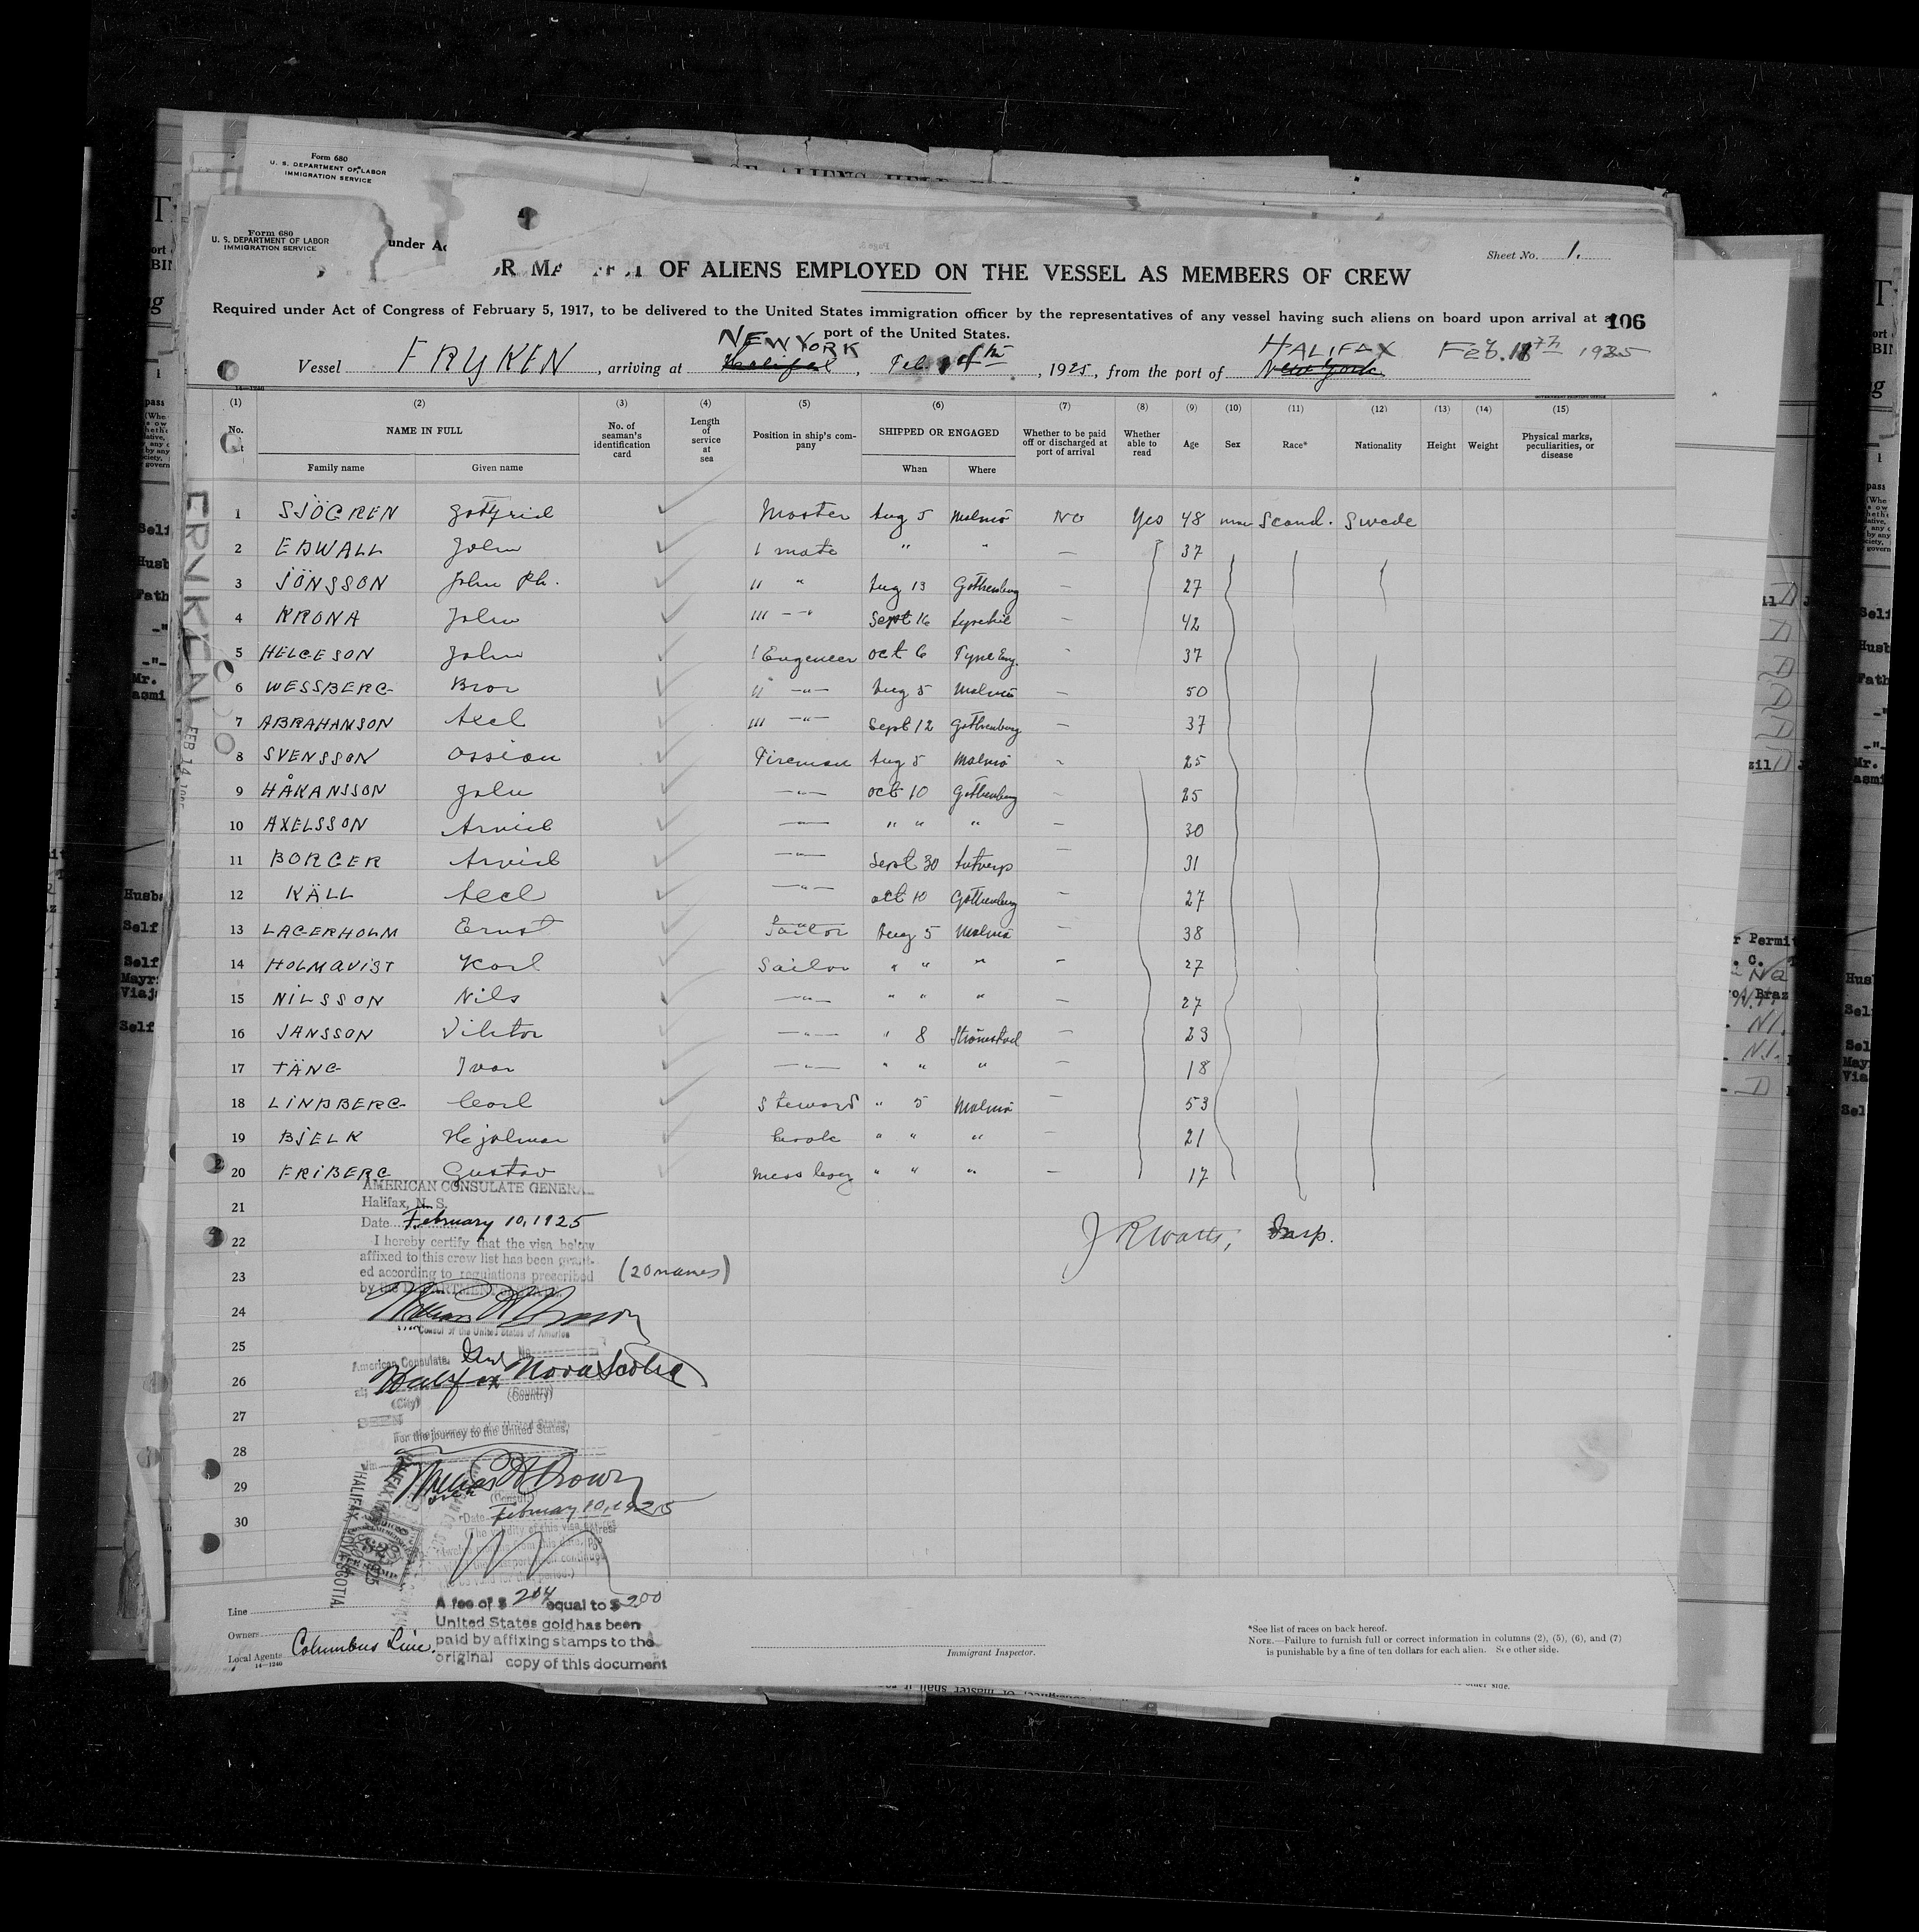 Form 680
U. S. DEPARTMENT OF LABOR
IMMIGRATION SERVICE
Form 680
U. S. DEPARTMENT OF LABOR
IMMIGRATION SERVICE
under Ac
Sheet No. 1.
OF ALIENS EMPLOYED ON THE VESSEL AS MEMBERS OF CREW
Required under Act of Congress of February 5, 1917, to be delivered to the United States immigration officer by the representatives of any vessel having such aliens on board upon arrival at a
106
port of the United States.
NEW YORK
HALIFAX Feb. 1925
Vessel FRYKEN, arriving at Halifax, Feb., 1925, from the port of New York
(1) (2) (3) (4) (5) (6) (7) (8) (9) (10) (11) (12) (13) (14) (15)
No. NAME IN FULL No. of seaman's identification card Length of service at sea Position in ship's company SHIPPED OR ENGAGED Whether to be paid off or discharged at port of arrival Whether able to read Age Sex Race* Nationality Height Weight Physical marks, peculiarities, or disease
Family name Given name When Where
1 SJÖGREN Gottfrid Master Aug 5 Malmö No Yes 48 Scand. Swede
2 EDWALL John 1 mate " " — 37
3 JÖNSSON John Ph. II " Aug 13 Gothenburg — 27
4 KRONA John III —"— Sept 16 Lysekil — 42
5 HELGESON John I Engeneer Oct 6 Tyne Eng. - 37
6 WESSBERG Bror II —"— Aug 5 Malmö — 50
7 ABRAHANSON Axel III —"— Sept 12 Gothenburg — 37
8 SVENSSON Ossian Fireman Aug 5 Malmö - 25
9 HÅKANSSON John —"— Oct 10 Gothenburg - 25
10 AXELSSON Arvid —"— " " " — 30
11 BORGER Arvid —"— Sept 30 Antverp — 31
12 KÄLL Axel —"— Oct 10 Gothenburg — 27
13 LAGERHOLM Ernst Sailor Aug 5 Malmö — 38
14 HOLMQVIST Karl Sailor " " " — 27
15 NILSSON Nils —"— " " " — 27
16 JANSSON Viktor —"— " 8 Strömstad — 23
17 TÄNG Ivar —"— " " " — 18
18 LINDBERG Carl Steward " 5 Malmö — 53
19 BJELK Hejalmar Cook " " " — 21
20 FRIBERG Gustav Mess boy " " " — 17
21
22
23
24
25
26
27
28
29
30
AMERICAN CONSULATE GENERAL
Halifax, N. S.
Date February 10, 1925
I hereby certify that the visa below
affixed to this crew list has been grant-
ed according to regulations prescribed
by the DEPARTMENT
(20 names)
J R Watts, Insp.
Consul of the United States of America
American Consulate Genl No.
at Halifax Nova Scotia
(City) (Country)
SEEN
For the journey to the United States,
(Consul)
Date February 10, 1925
HALIFAX, NOVA SCOTIA.
A fee of $ 2.04 equal to $ 2.00
United States gold has been
paid by affixing stamps to the
original copy of this document
Line
Owners
Local Agents Columbus Line.
14—1240
Immigrant Inspector.
*See list of races on back hereof.
NOTE.—Failure to furnish full or correct information in columns (2), (5), (6), and (7)
is punishable by a fine of ten dollars for each alien. See other side.
FRYKEN
FEB 14